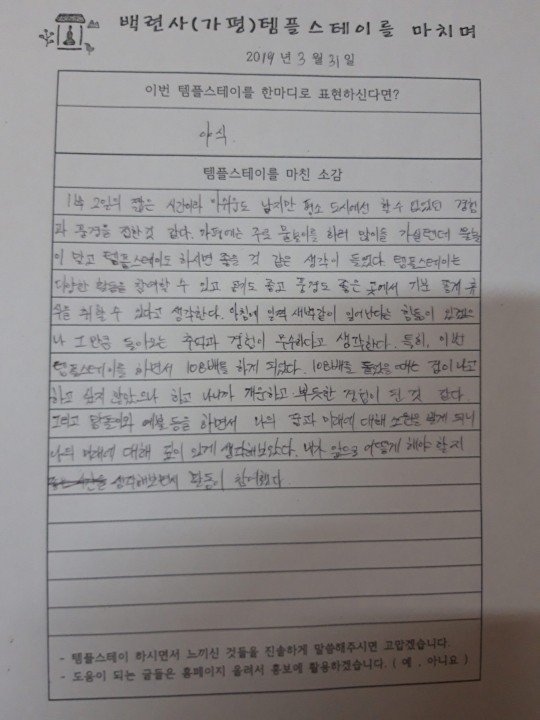 백련사(가평)템플스테이를 마치며
2019 년 3 월 31 일
이번 템플스테이를 한마디로 표현하신다면?
야식
템플스테이를 마친 소감
1박 2일의 짧은 시간이라 아쉬움도 남지만 평소 도시에선 할 수 없었던 경험
과 풍경을 접한 것 같다. 가평에는 주로 물놀이를 하러 많이들 가실텐데 물놀
이 말고 템플스테이도 하시면 좋을 것 같은 생각이 들었다. 템플스테이는
다양한 활동을 참여할 수 있고 공기도 좋고 풍경도 좋은 곳에서 기분 좋게 휴
식을 취할 수 있다고 생각한다. 아침에 일찍 새벽같이 일어난다는 힘듦이 있었으
나 그만큼 돌아오는 추억과 경험이 무수하다고 생각한다. 특히, 이번
템플스테이를 하면서 108배를 하게 되었다. 108배를 들었을 때는 겁이 나고
하고 싶지 않았으나 하고 나니까 개운하고 뿌듯한 경험이 된 것 같다.
그리고 탑돌이와 예불 등을 하면서 나의 꿈과 미래에 대해 소원을 빌게 되니
나의 미래에 대해 깊이 있게 생각해보았다. 내가 앞으로 어떻게 해야 할지
생각해보면서 탑돌이 참여했다
- 템플스테이 하시면서 느끼신 것들을 진솔하게 말씀해주시면 고맙겠습니다.
- 도움이 되는 글들은 홈페이지 올려서 홍보에 활용하겠습니다. ( 예 , 아니요 )